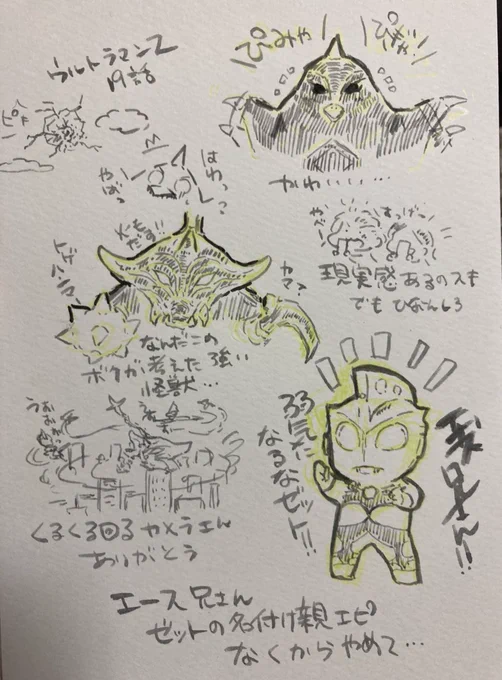 ウルトラマンZ
19話
ぴみゃ
ぴぎゃ
かわいい…
ピキ
はわっ?
やばっ
すっげー
やべー
現実感あるのスキ
でもひなんしろ
ヒゲ
カマ?
なんだこの
ボクが考えた強い
怪獣…
弱気に
なるなゼット!!
くるくる回るカメラさん
ありがとう
エース兄さん
ゼットの名付け親エピ
なくからやめて…